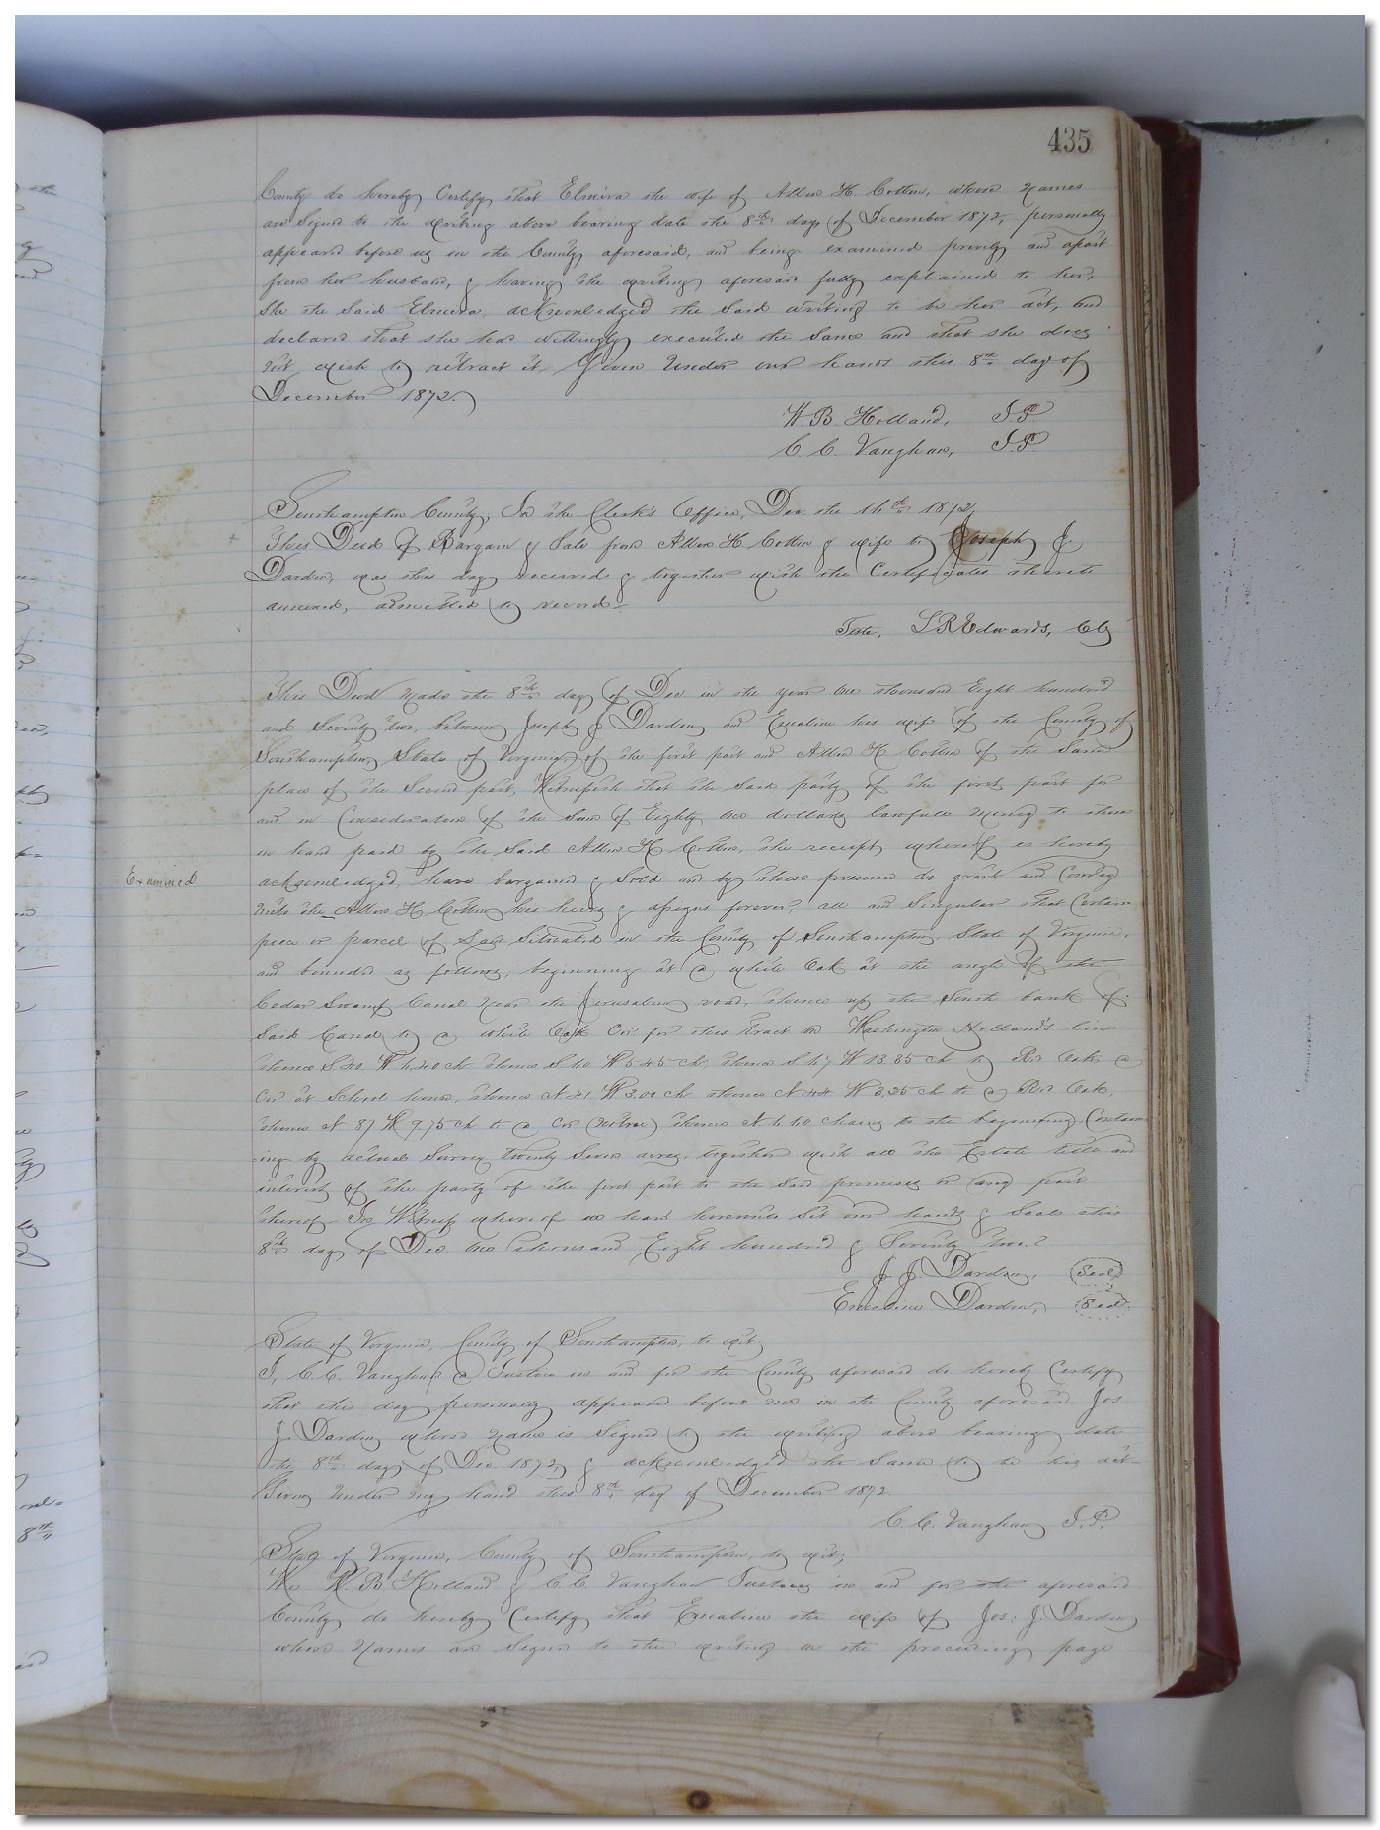 435
County do hereby Certify that Elmira the wife of Allen H. Cotten, whose names
are Signed to the writing above bearing date the 8th day of December 1872, personally
appeared before us in the County aforesaid, and being examined privily and apart
from her husband, & having the writing aforesaid fully explained to her,
She the Said Elmira, acknowledged the Said writing to be her act, and
declared that she had willingly executed the Same and that she does
not wish to retract it. Given Under our hands this 8th day of
December 1872.
W B Holland, J.P.
C. C. Vaughan, J.P.
Southampton County, In the Clerk's Office, Dec the 16th 1872,
This Deed of Bargain & Sale from Allen H. Cotten & wife to Joseph J.
Darden, was this day received & together with the Certificates thereto
annexed, admitted to record.
Teste, L R Edwards, Clk
This Deed made the 8th day of Dec in the year one thousand Eight hundred
and Seventy two, between Joseph J Darden and Emeline his wife of the County of
Southampton, State of Virginia, of the first part and Allen H Cotten of the Same
place of the Second part, Witnesseth that the Said party of the first part for
and in Consideration of the Sum of Eighty one dollars lawfull money to them
in hand paid by the Said Allen H Cotten, the receipt whereof is hereby
Examined
acknowledged, have bargained & Sold and by these presents do grant and Convey
unto the Allen H Cotten his heirs & assigns forever, all and Singular that Certain
piece or parcel of Land Situated in the County of Southampton, State of Virginia,
and bounded as follows, beginning at a white Oak at the angle of the
Cedar Swamp Canal near the Jerusalem road, thence up the South bank of
Said Canal to a white Oak Cor. for this tract on Washington Holland's line
thence S 20 W 6.40 ch thence S 60 W 5.45 ch, thence S 67 W 13.85 ch to Red Oak a
Cor. at School house, thence N 41 W 3.01 ch thence N 44 W 3.25 ch to a Red Oak,
thence N 87 W 9.75 ch to a Cor (no tree) thence N 6.60 chains to the beginning Contain
ing by actual Survey twenty Seven acres, together with all the Estate title and
interest of the party of the first part to the Said premises or any part
thereof. In Witness whereof we have hereunto Set our hands & Seals this
8th day of Dec. One thousand Eight hundred & Seventy two.
J J Darden, (Seal)
Emeline Darden, (Seal)
State of Virginia, County of Southampton, to wit,
I, C. C. Vaughan a Justice in and for the County aforesaid do hereby Certify
that this day personally appeared before me in the County aforesaid Jos
J. Darden whose name is Signed to the writing above bearing date
the 8th day of Dec 1872, & acknowledged the Same to be his act
Given Under my hand this 8th day of December 1872.
C. C. Vaughan J.P.
State of Virginia, County of Southampton, to wit,
We W. B. Holland & C. C. Vaughan Justices in and for the aforesaid
County do hereby Certify that Emeline the wife of Jos: J. Darden
whose names are Signed to the writing on the preceding page